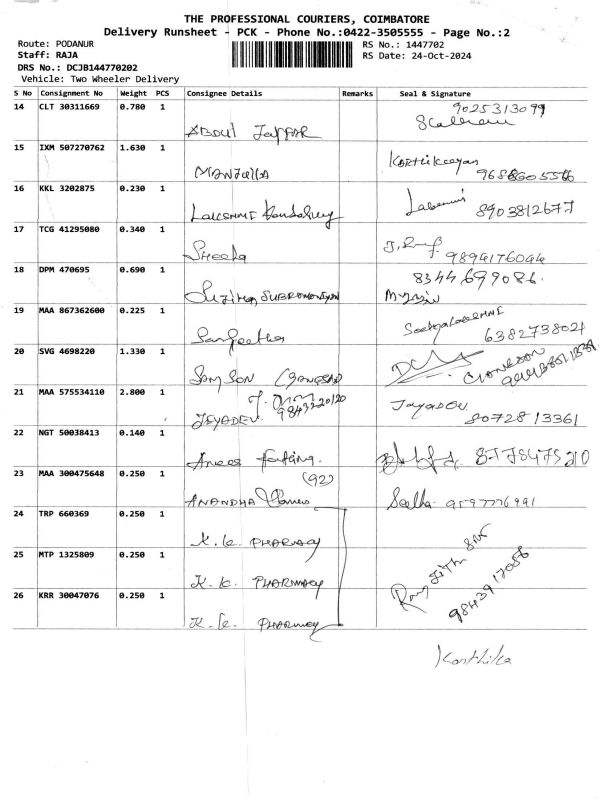 THE PROFESSIONAL COURIERS, COIMBATORE
Delivery Runsheet - PCK - Phone No.:0422-3505555 - Page No.:2
Route: PODANUR RS No.: 1447702
Staff: RAJA RS Date: 24-Oct-2024
DRS No.: DCJB144770202
Vehicle: Two Wheeler Delivery
S No Consignment No Weight PCS Consignee Details Remarks Seal & Signature
14 CLT 30311669 0.780 1 9025313099
ABDUL JAFFAR
15 IXM 507270762 1.630 1 Karthikeeyan
Manjulla
16 KKL 3202875 0.230 1
Lakshmi 8903812677
17 TCG 41295080 0.340 1
Sheela 9894176044
18 DPM 470695 0.690 1 8344699086
SUBRAMONIYAN
19 MAA 867362600 0.225 1
Sangeetha 6382738021
20 SVG 4698220 1.330 1
SAMSON
21 MAA 575534110 2.800 1 9843220120
JEYADEV 8072813361
22 NGT 50038413 0.140 1
Anees 8778475210
23 MAA 300475648 0.250 1 (92)
ANANDHA 9597776991
24 TRP 660369 0.250 1
K.K. PHARMACY
25 MTP 1325809 0.250 1
K.K. PHARMACY
26 KRR 30047076 0.250 1 9843917056
K.K. PHARMACY
Karthika